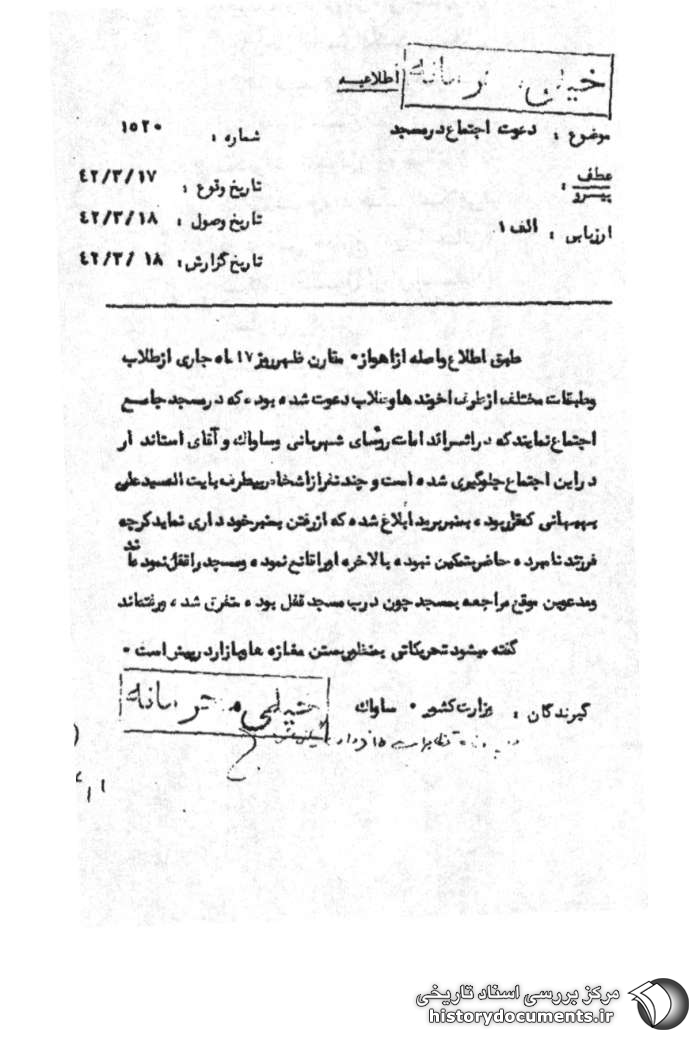 خیلی محرمانه
اطلاعیه
موضوع : دعوت اجتماع در مسجد
شماره : ۱۵۲۰
عطف
پیرو :
تاریخ وقوع : ۴۲/۳/۱۷
ارزیابی : الف ۱
تاریخ وصول : ۴۲/۳/۱۸
تاریخ گزارش : ۴۲/۳/۱۸
طبق اطلاع واصله از اهواز۰ مقارن ظهر روز ۱۷ ماه جاری از طلاب
وطبقات مختلف از طرف اخوند ها وطلاب دعوت شده بوده که در مسجد جامع
اجتماع نمایند که در اثر اقدامات روسای شهربانی وساواک و آقای استاندار
در این اجتماع جلوگیری شده است و چند نفر از اشخاص بیطرف بایت السید علی
بهبهانی که قرار بوده بمنبر برود ابلاغ شده که از رفتن بمنبر خود داری نماید گرچه
فرزند نامبرده حاضر بتمکین نبوده بالاخره او را قانع نموده و مسجد را قفل نموده اند
ومدعوین موقع مراجعه بمسجد چون درب مسجد قفل بوده متفرق شده ورفته اند
گفته میشود تحریکاتی بمنظور بستن مغازه ها وبازار در پیش است ۰
گیرندگان : وزارت کشور ۰ ساواک
خیلی محرمانه
۱۵ خرداد
مرکز بررسی اسناد تاریخی
historydocuments.ir